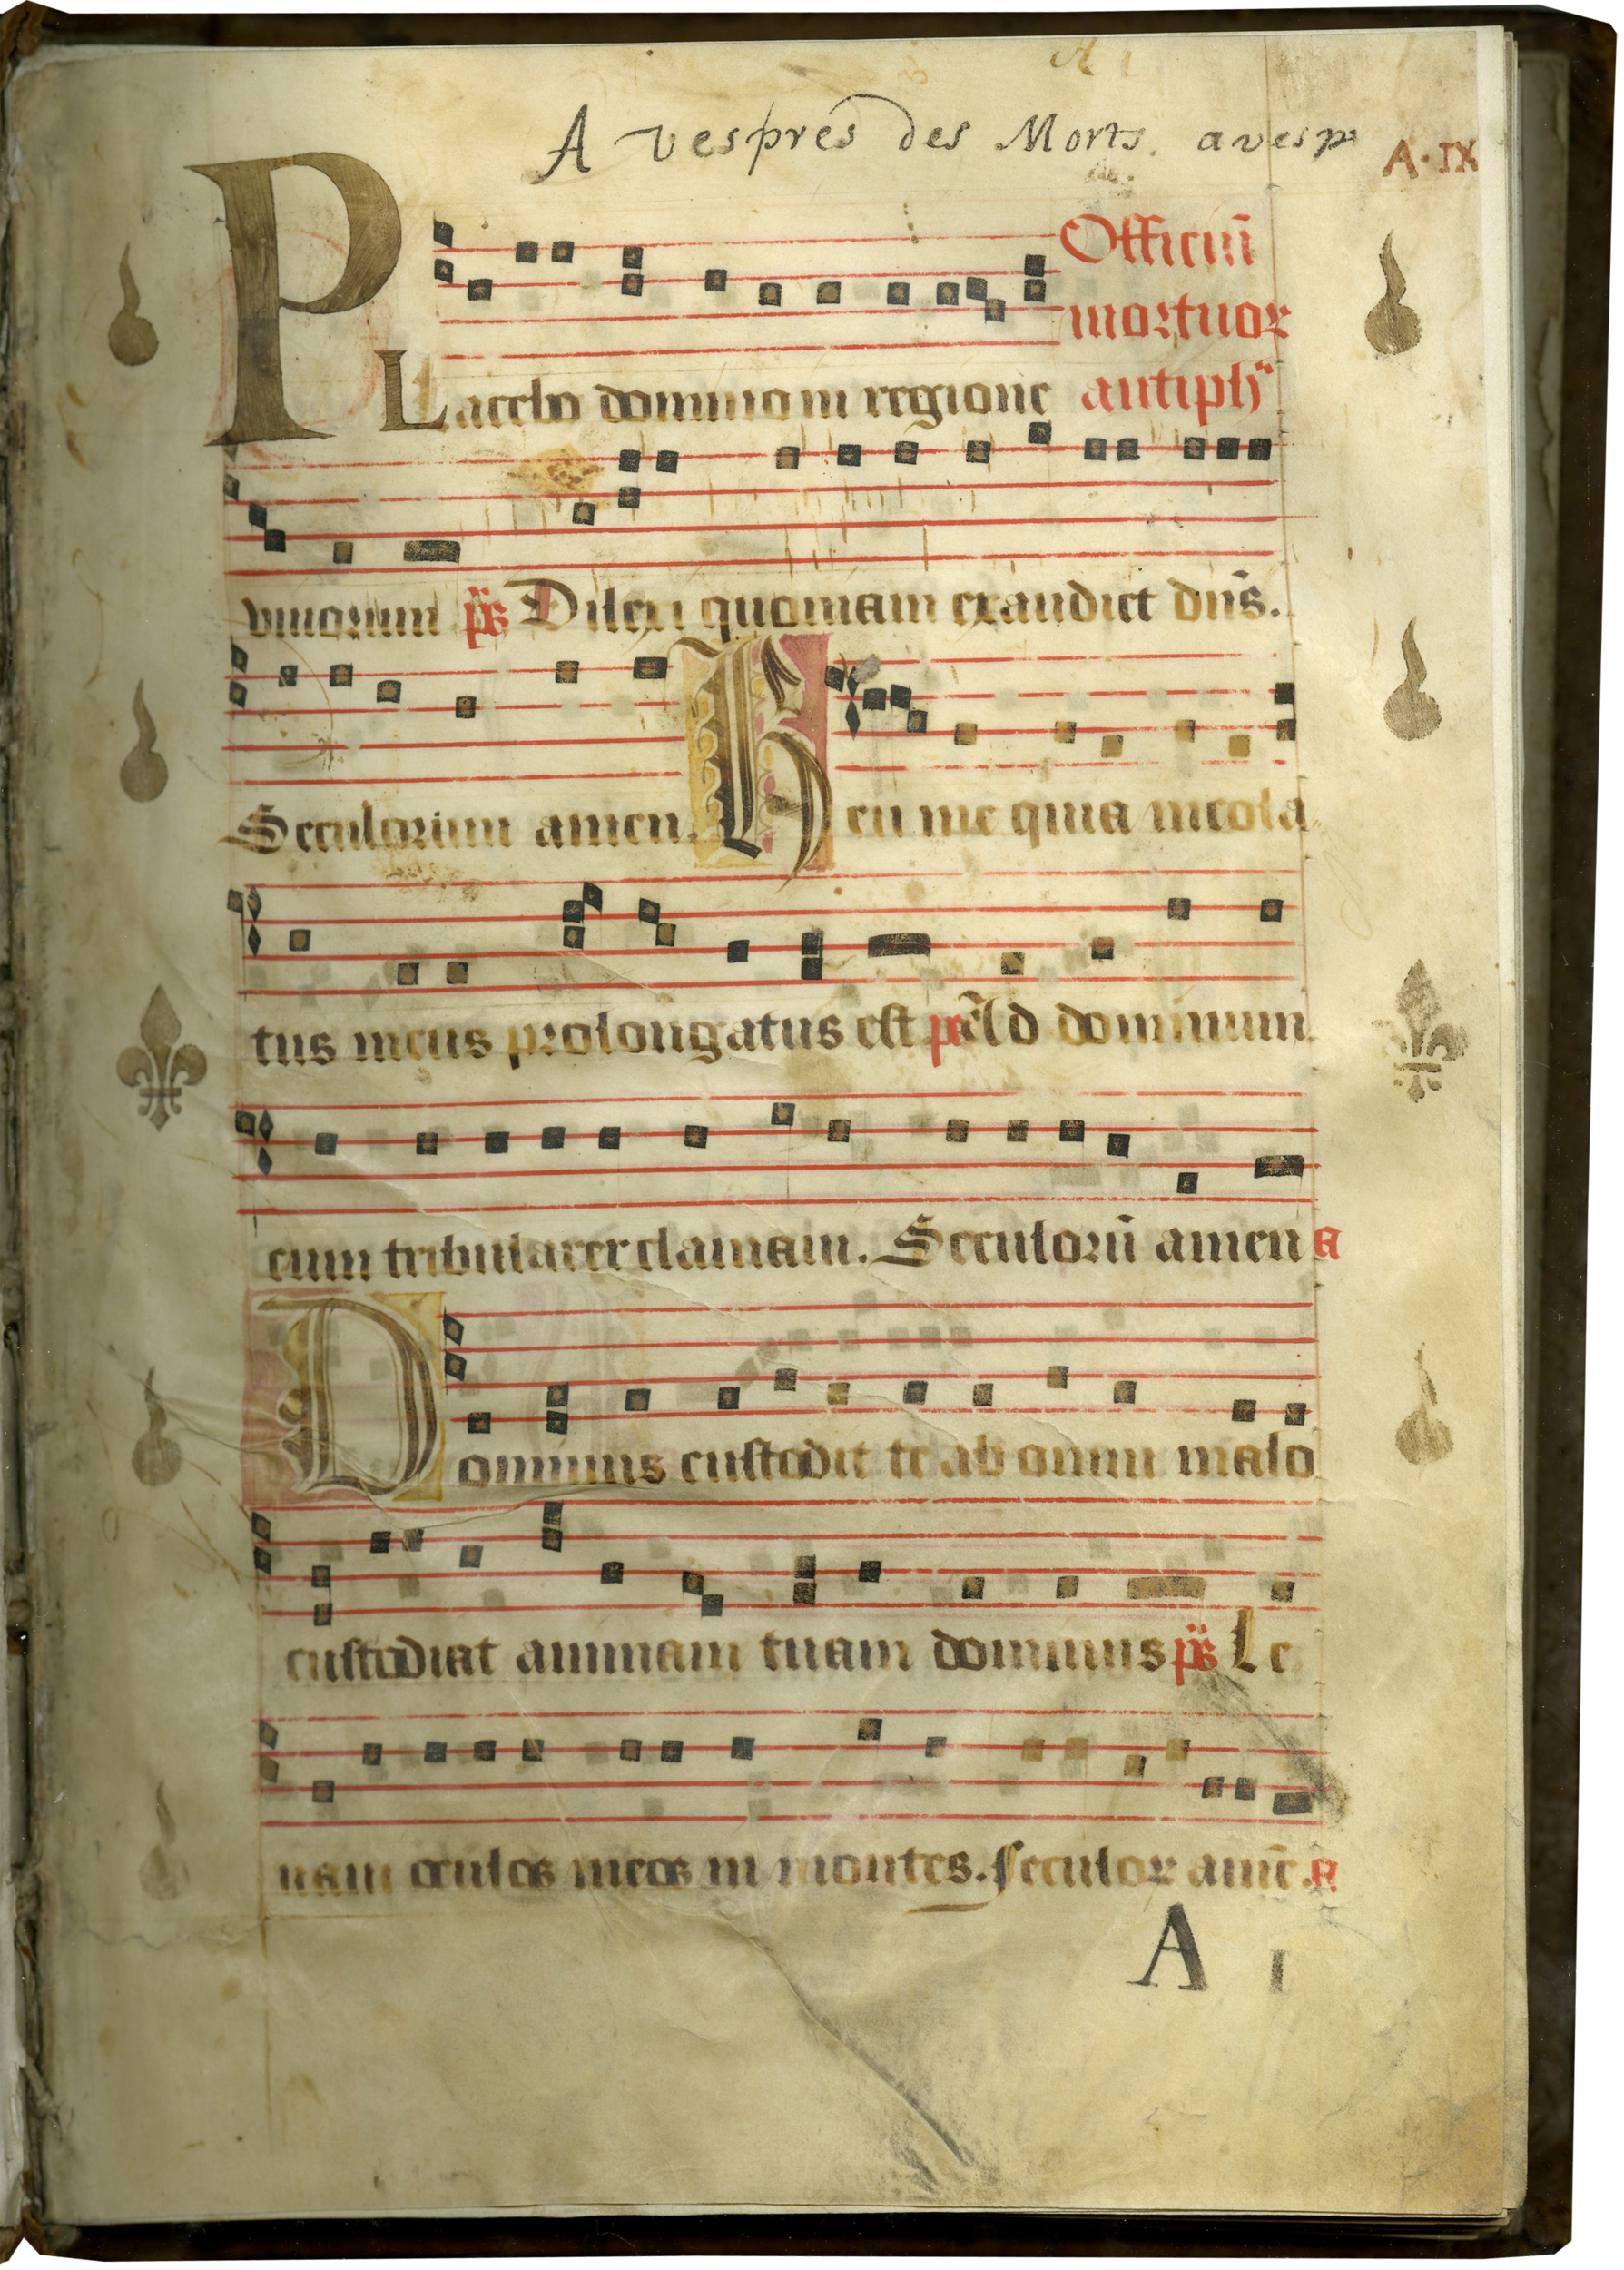 A vespres des Morts. avesp
A·IX
Officiũ
mortuor
PLacebo domino in regione antiphª
viuorum ps̃ Dilexi quoniam exaudiet dñs.
Seculorum amen. Heu me quia incola
tus meus prolongatus est ps̃ Ad dominum
cum tribularer clamaui. Seculorũ amen a
Dominus custodit te ab omni malo
custodiat animam tuam dominus ps̃ Le
uaui oculos meos in montes. seculor amẽ. a
A I